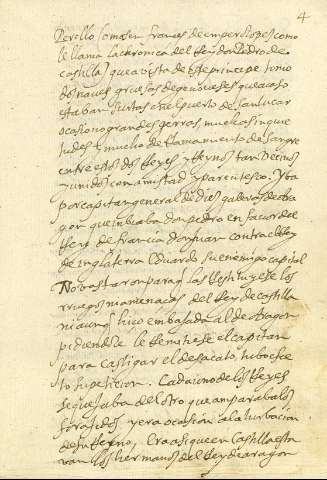 4
Perellos o mosen frances de emperellopes como
le llama la chronica del Rey don Pedro de
castilla) que a vista de este principe tomo
dos naves gruesas de genoveses que acaso
estaban surtas en el puerto de sanlucar
ocasiono grandes gerras, muchas inquie
tudes y mucho derramamiento de sangre
entre estos dos Reyes y Reynos tan vecinos
y unidos con amistad y parentesco. Yba
por capitan general de diez galeras de ara
gon que inbiaba don pedro en favor del
Rey de francia don Juan contra el Rey
de inglaterra Eduardo su enemigo capital
No bastaron para q las Restituyese los
rruegos ni amenaças del Rey de castilla
ni aung hiço embajada al de Aragon
pidiendole le Remitiese el capitan
para castigar el desacato, hubo efec
to su peticion. Cada uno de los Reyes
se quejaba del otro que amparaba los
forajidos y era ocasion a la turbacion
de su Reyno, Era asi que en Castilla esta
van los hermanos del Rey de aragon